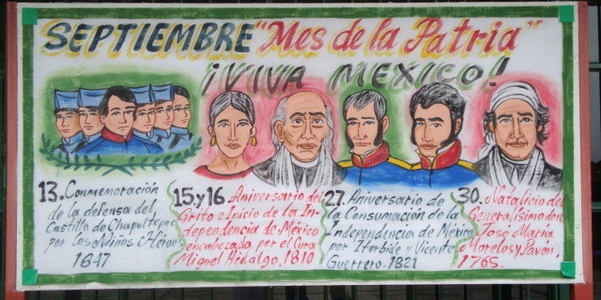 SEPTIEMBRE "Mes de la Patria"
¡VIVA MEXICO!
13. Conmemoración
de la defensa del
Castillo de Chapultepec
por Los Niños Héroe
1847
15 y 16. Aniversario del
Grito e Inicio de la In-
dependencia de México
encabezada por el Cura
Miguel Hidalgo, 1810
27. Aniversario de
la Consumación de la
Independencia de México
por Iturbide y Vicente
Guerrero. 1821
30. Natalicio del
Generalísimo don
José María
Morelos y Pavón.
1765.